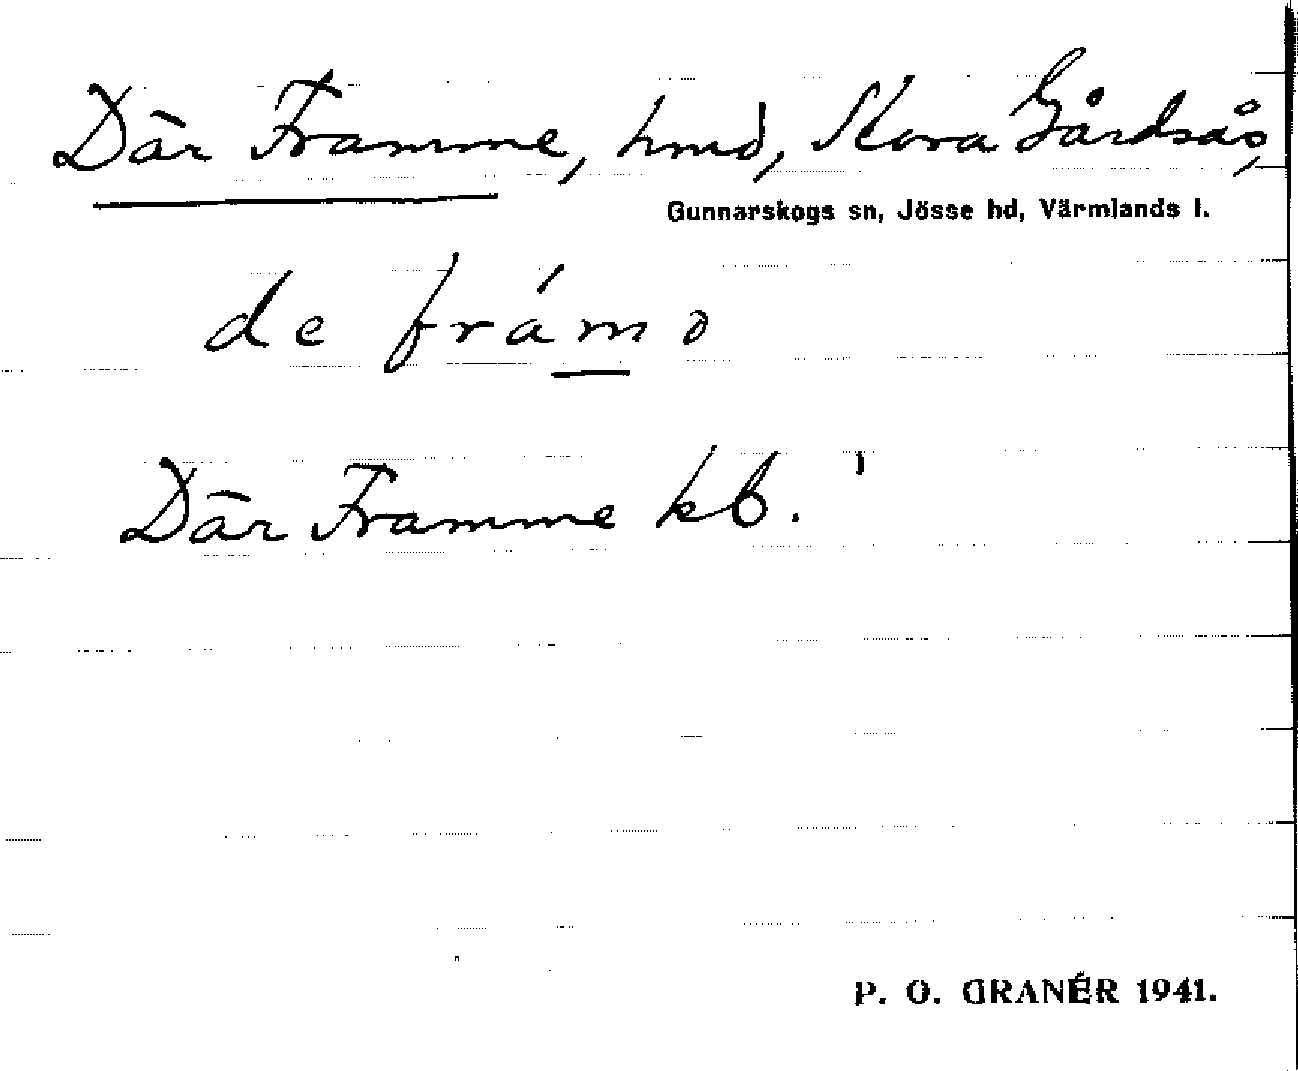 Där Framme, hmd, Stora Gårdsås,
Gunnarskogs sn, Jösse hd, Värmlands l.
de frámə
Där Framme kb.
P. O. GRANÉR 1941.